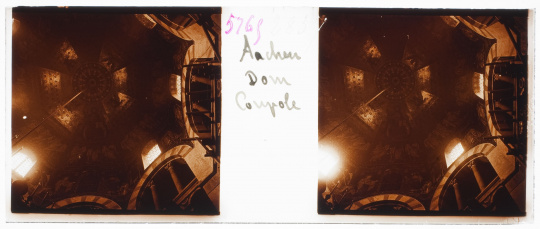 5765
Aachen
Dom
Coupole